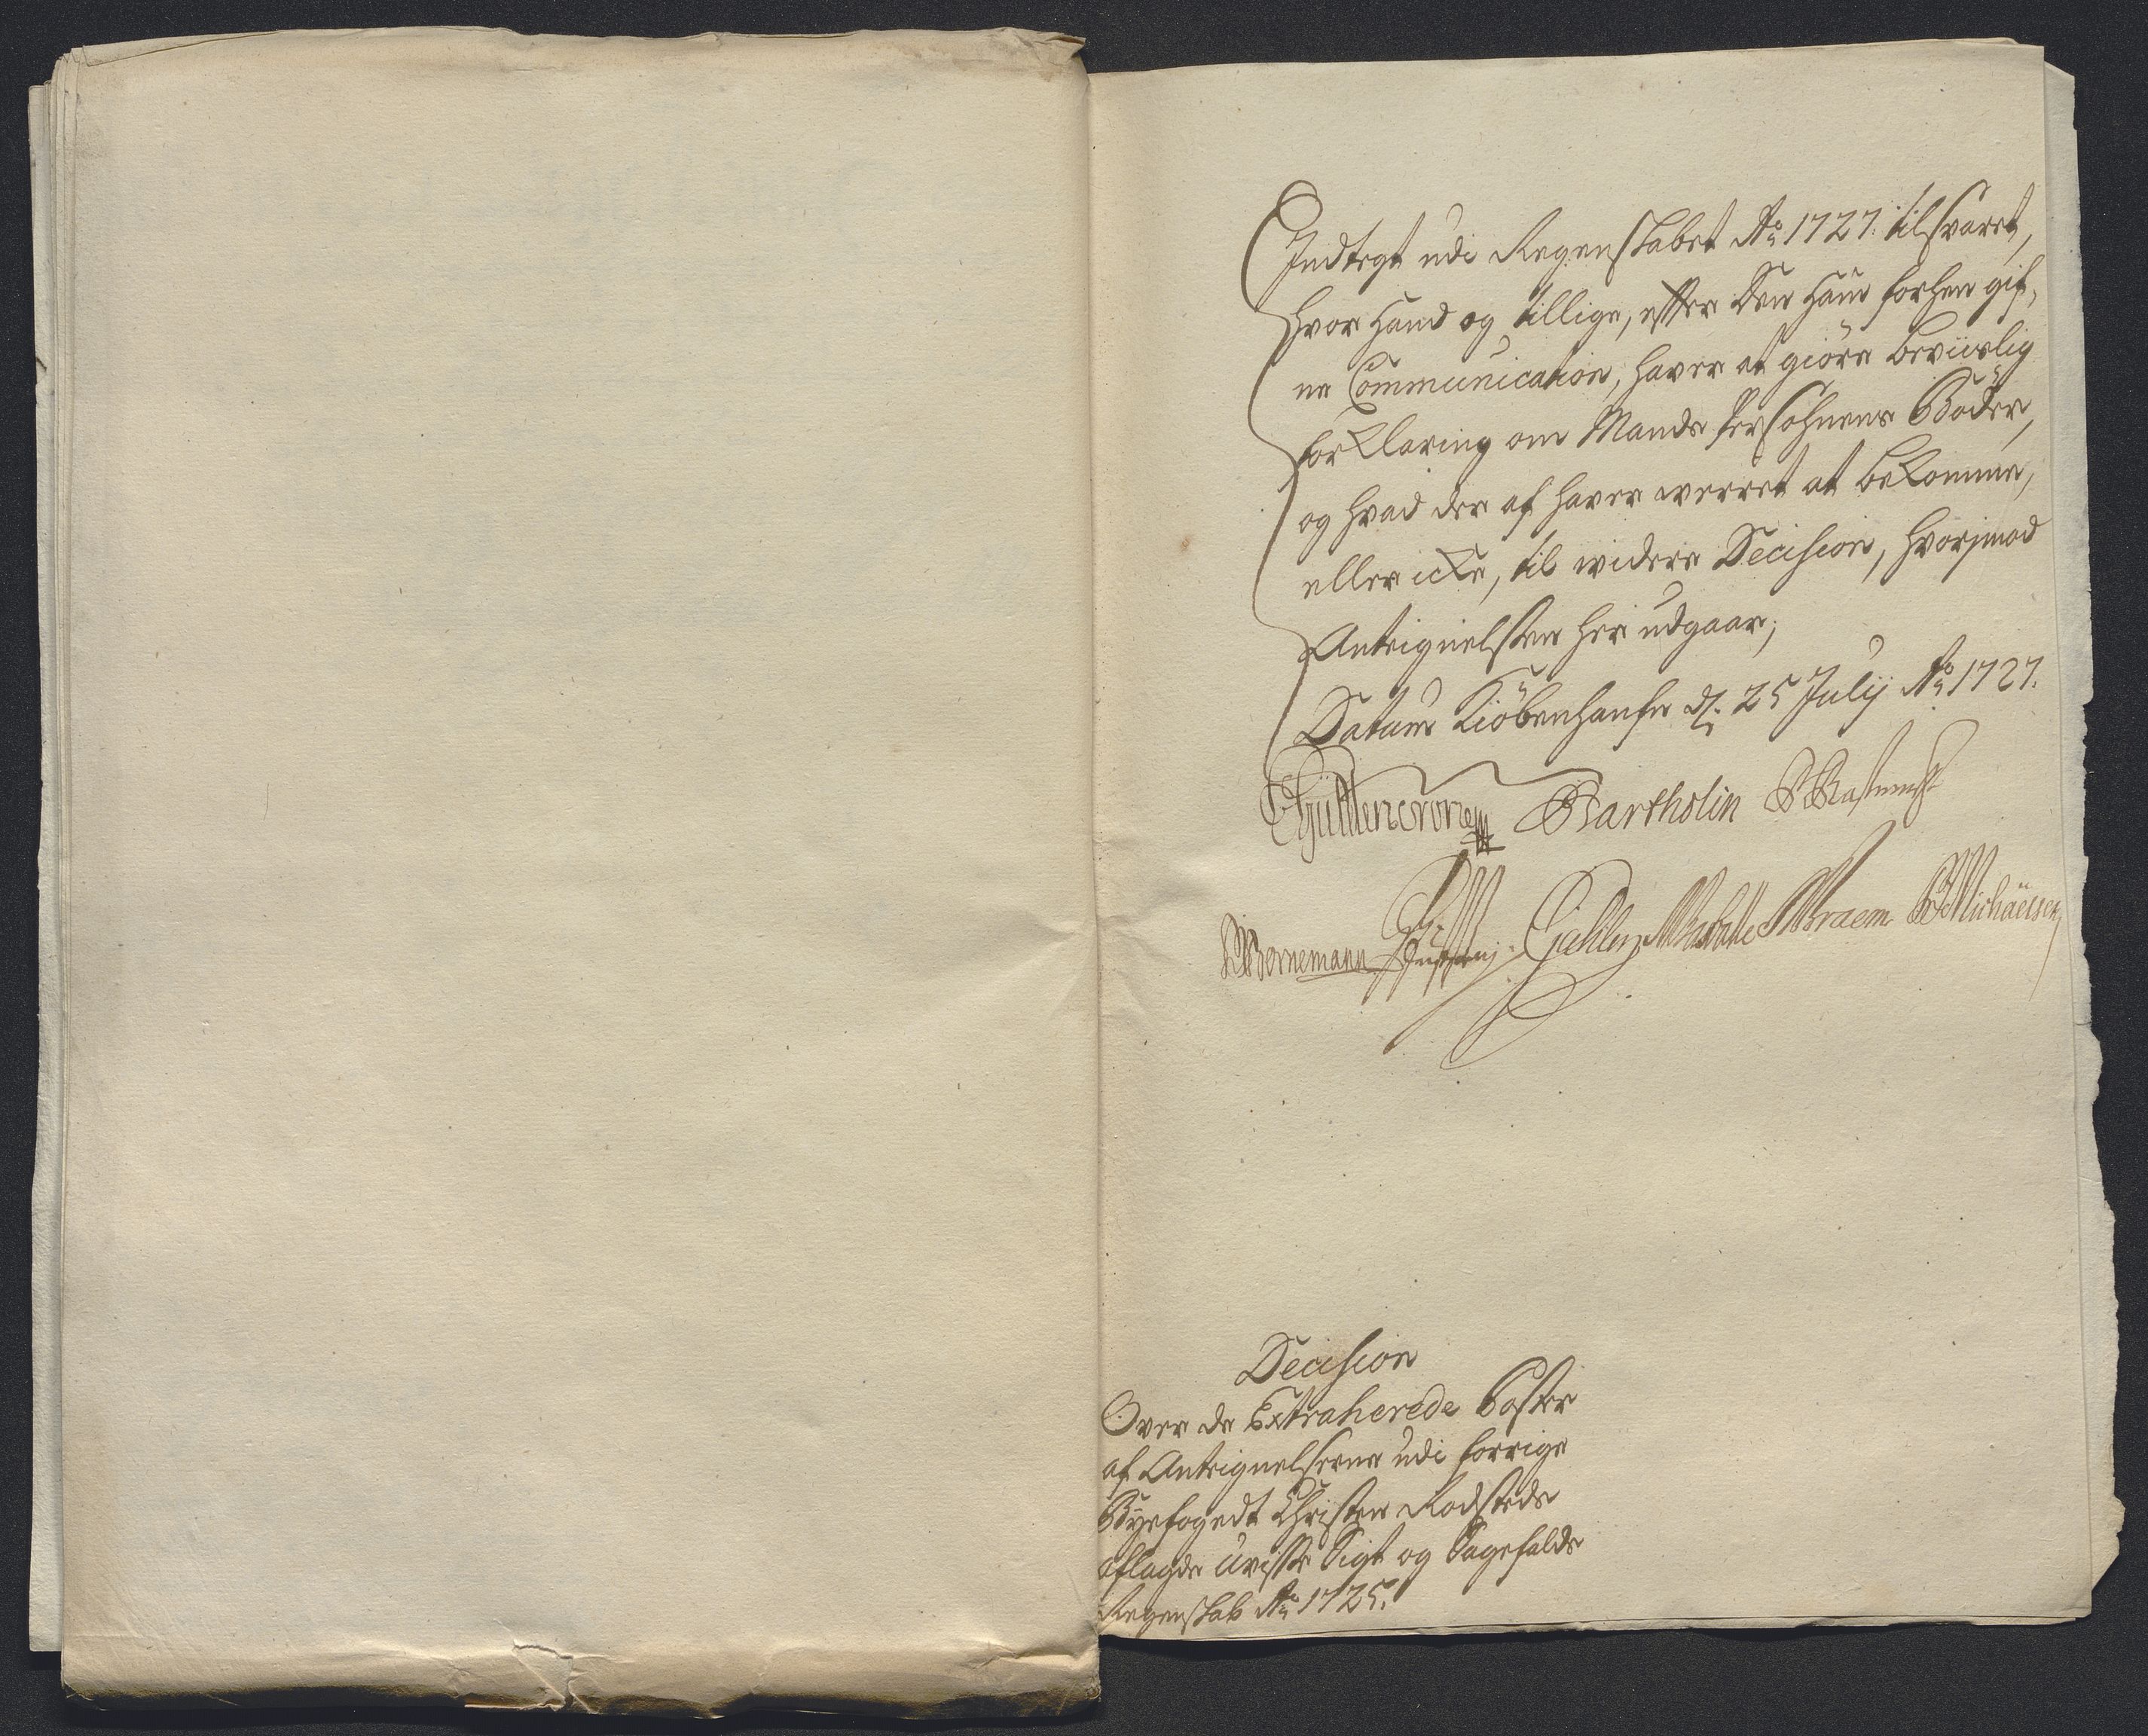 Indtegt udi Regenskabet Ao 1727. tilsvaret,
hvor hand og tillige, efter den ham forhen gif,
ne Communication, haver at giöre beviislig
forklaring om Mands Persohnens Böder,
og hvad der af haver verret at bekomme,
eller icke, til widere Decision, hvorjmod
Antegnelsen her udgaar;
Datum Kiöbenhaufn d. 25 Julij Ao 1727.
Güldencrone Bartholin
Bornemann Braem Michaelsen
Decision
Over de Extraherede Poster
af Antegnelserne udi forrige
Byefogedt Christen Rodsteds
aflagde Uvisse Sigt og Sagefalds
Regenskab Ao 1725.